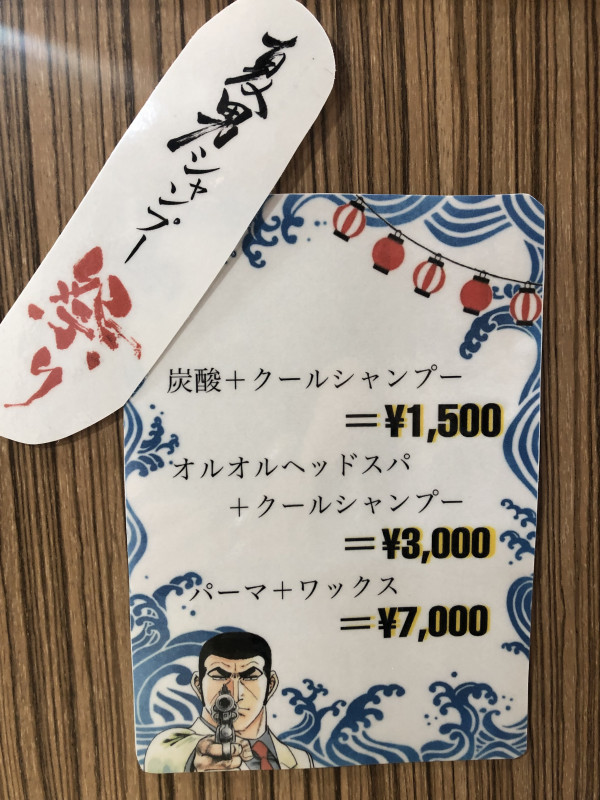 夏男シャンプー
祭り
炭酸＋クールシャンプー
＝¥1,500
オルオルヘッドスパ
＋クールシャンプー
＝¥3,000
パーマ＋ワックス
＝¥7,000